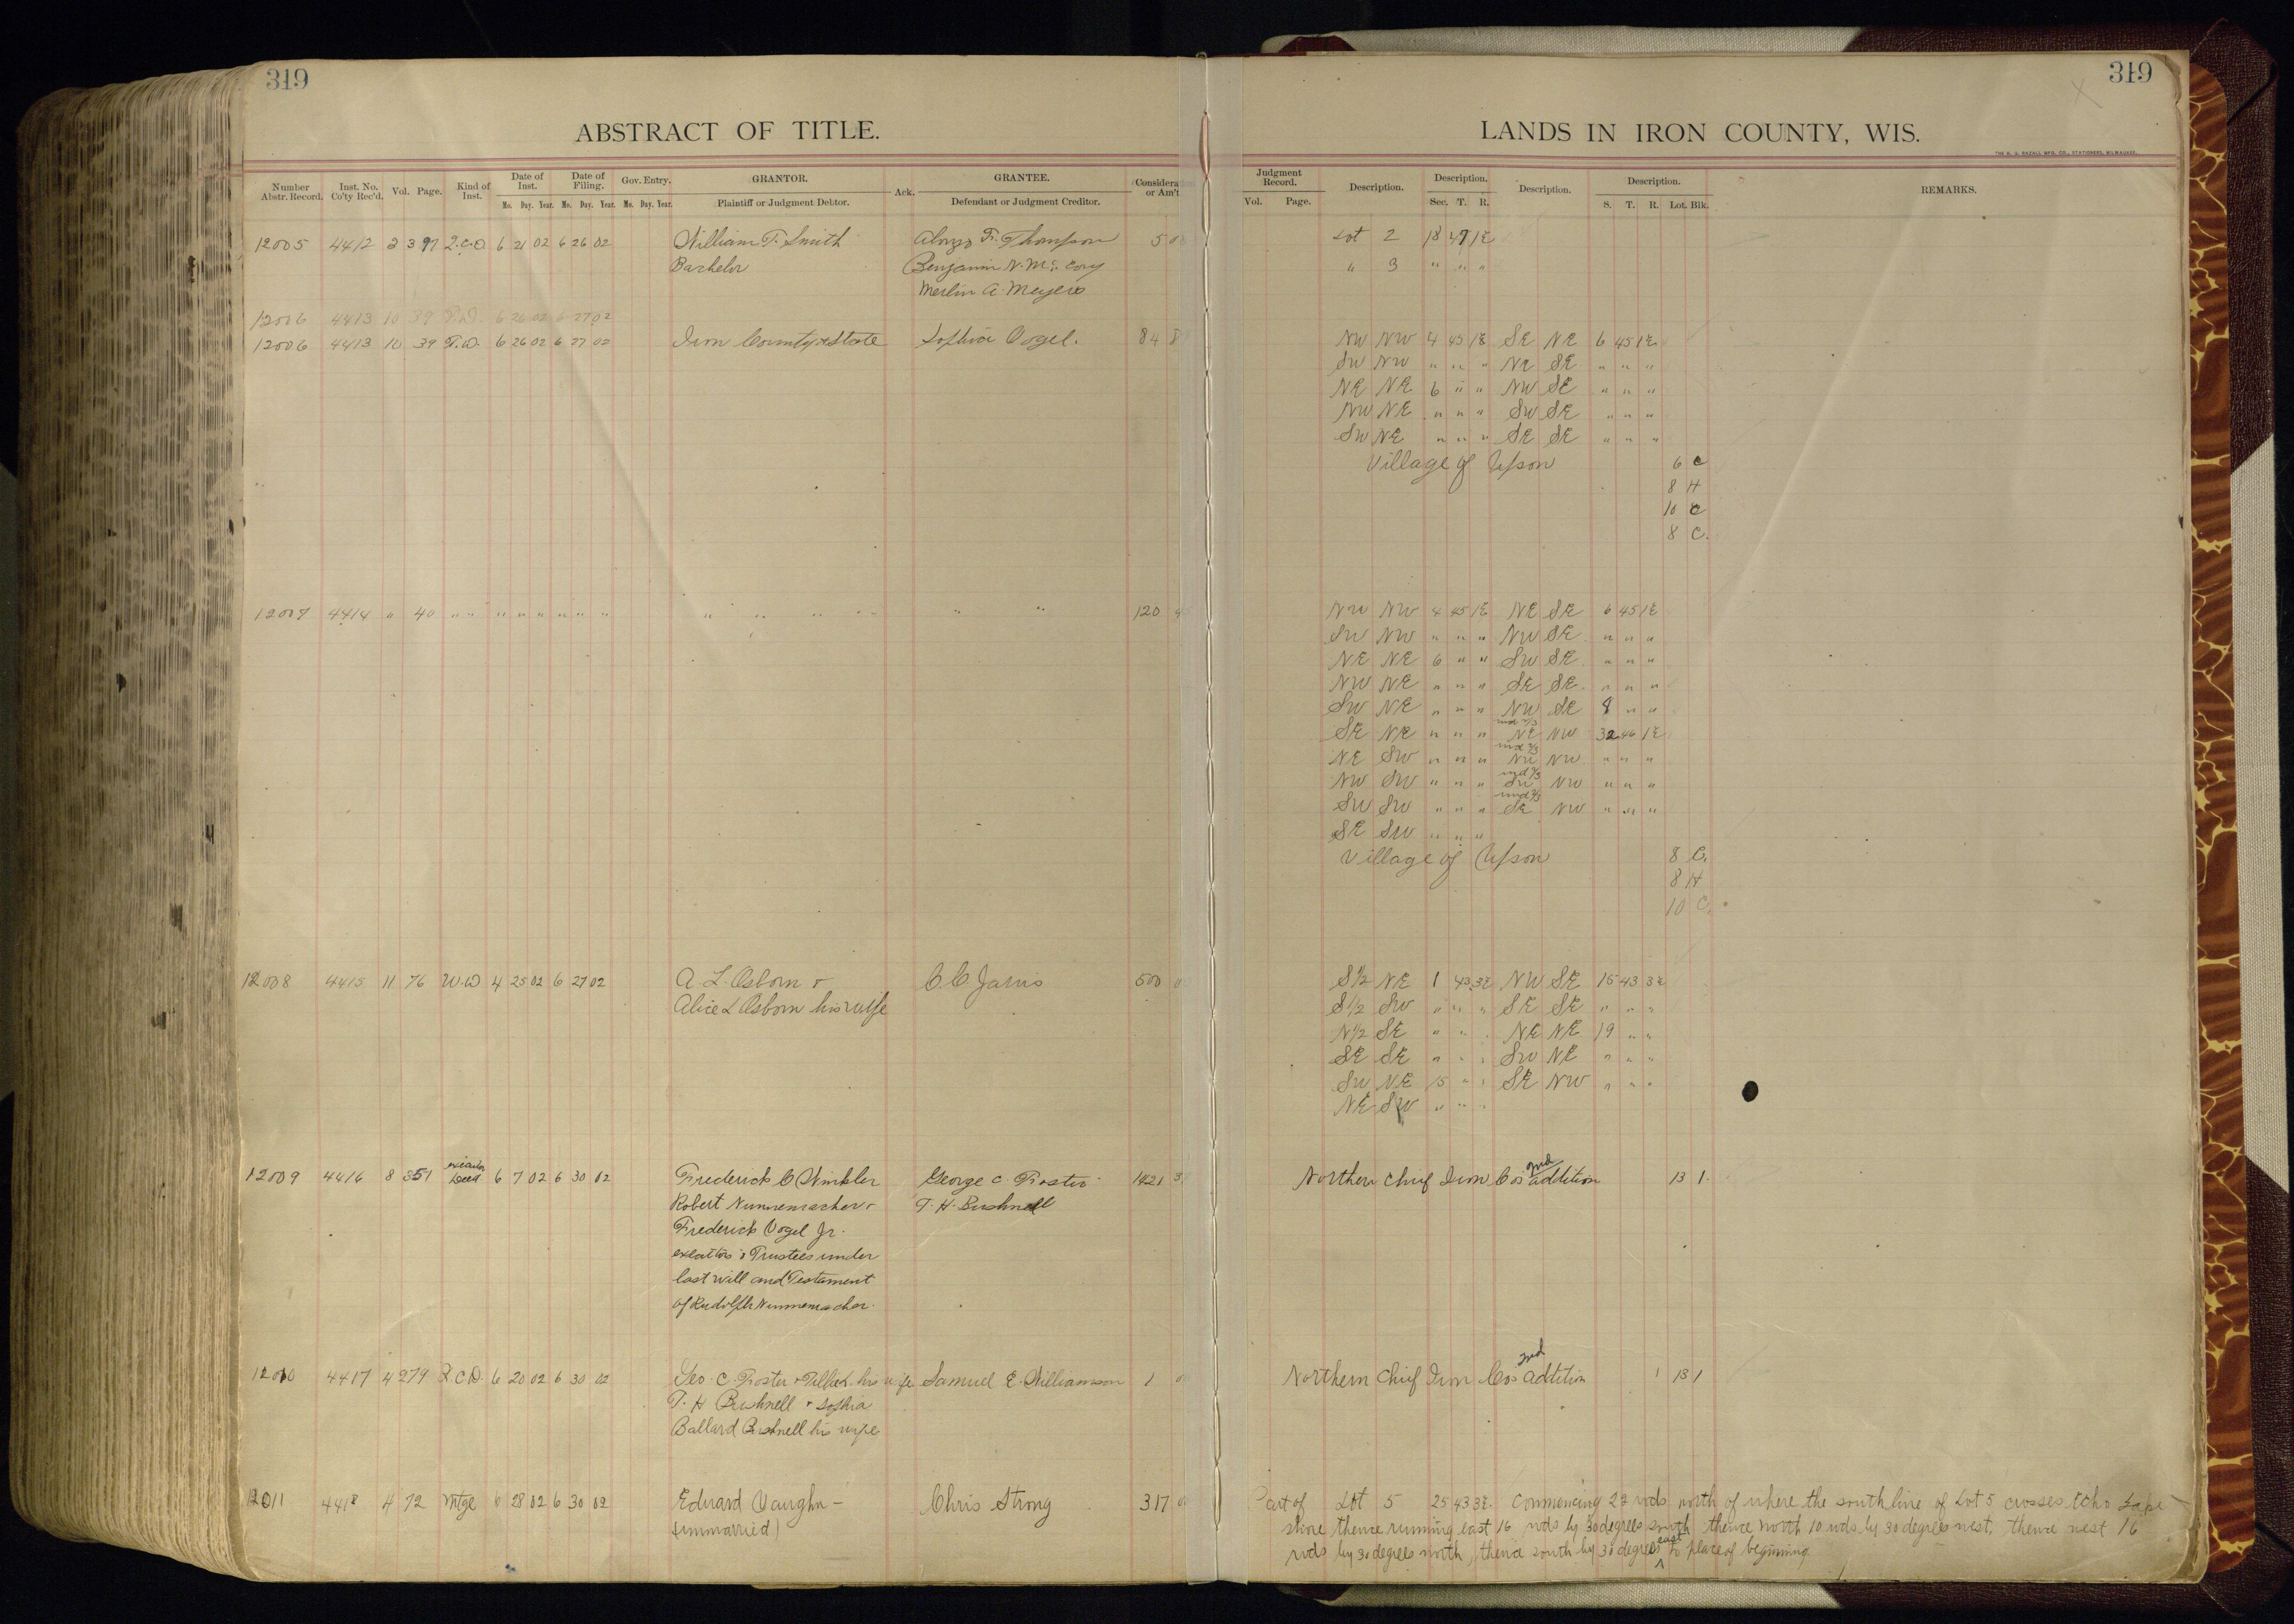 319
ABSTRACT OF TITLE.
Number Abstr. Record. Inst. No. Co'ty Rec'd. Vol. Page. Kind of Inst. Date of Inst. Mo. Day. Year. Date of Filing. Mo. Day. Year. Gov. Entry. Mo. Day. Year. GRANTOR. Plaintiff or Judgment Debtor. Ack. GRANTEE. Defendant or Judgment Creditor. Considera or Am't
12005 4412 2 397 Q.C.D. 6 21 02 6 26 02 William T. Smith Alonzo F. Thompson 5
Bachelor Benjamin N. Mc
Merlin A. Meyers
12006 4413 10 39 T.D. 6 26 02 6 27 02
12006 4413 10 39 T.D. 6 26 02 6 27 02 Iron County & State Sophia Vogel. 84 8
12007 4414 " 40 " " " " " " " " " " " " " " 120
12008 4415 11 76 W.D 4 25 02 6 27 02 A. L. Osborn & C. C. Jarvis 500
Alice L Osborn his wife
12009 4416 8 351 Deed 6 7 02 6 30 02 Frederick C Winkler George C. Foster 1421 3
Robert Nunnemacher & T. H. Bushnell
Frederick Vogel Jr.
& Trustees under
last will and Testament
of Rudolph Nunnemacher.
12010 4417 4 279 Q.C.D. 6 20 02 6 30 02 Geo. C. Foster & his wife Samuel E. Williamson 1
T. H Bushnell & Sophia
Ballard Bushnell his wife
12011 4418 4 72 Mtge 6 28 02 6 30 02 Edward Vaughn - Chris Strong 317
(unmarried)
319
LANDS IN IRON COUNTY, WIS.
THE H. G. RAZALL MFG. CO., STATIONERS, MILWAUKEE.
Judgment Record. Vol. Page. Description. Description. Sec. T. R. Description. Description. S. T. R. Lot. Blk. REMARKS.
Lot 2 18 47 1E
" 3 " " "
NW NW 4 45 1E SE NE 6 45 1E
SW NW " " " NE SE " " "
NE NE 6 " " NW SE " " "
NW NE " " " SW SE " " "
SW NE " " " SE SE " " "
Village of Upson 6 C
8 H
10 C
8 C.
NW NW 4 45 1E NE SE 6 45 1E
SW NW " " " NW SE " " "
NE NE 6 " " SW SE " " "
NW NE " " " SE SE " " "
SW NE " " " NW SE 8 " "
SE NE " " " und 2/3 NE NW 32 46 1E
NE SW " " " und 2/3 NW NW " " "
NW SW " " " und 2/3 SW NW " " "
SW SW " " " und 2/3 SE NW " " "
SE SW " " "
Village of Upson 8 C.
8 H
10 C.
S1/2 NE 1 43 3E NW SE 15 43 3E
S1/2 SW " " " SE SE " " "
N1/2 SE " " " NE NE 19 " "
SE SE " " " SW NE " " "
SW NE 15 " " SE NW " " "
NE SW " " "
Northern Chief Iron Co's 2nd addition 13 1.
Northern Chief Iron Co's 2nd addition 13 1
Part of Lot 5 25 43 3E. Commencing 22 rods north of where the south line of Lot 5 crosses Echo Lake
shore thence running east 16 rods by 30 degrees south thence north 10 rods by 30 degrees west, thence west 16
rods by 30 degrees north, thence south by 30 degrees east to place of beginning.